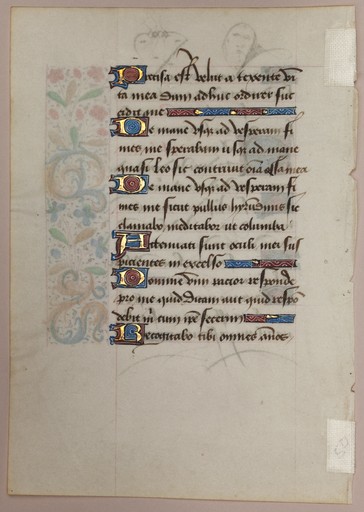 Precisa est velut a texente vi
ta mea dum adhuc ordirer suc
cidit me
De mane usq; ad vesperam fi
nies me sperabam usq; ad mane
quasi leo sic contrivit oīa ossa mea
De mane usq; ad vesperam fi
nies me sicut pullus hyrūdinis sic
clamabo meditabor ut columba
Attenuati sunt oculi mei sus
picientes in excelso
Domine vim patior responde
pro me quid dicam aut quid respō
debit m cum ipse fecerim
Recogitabo tibi omnes ānos